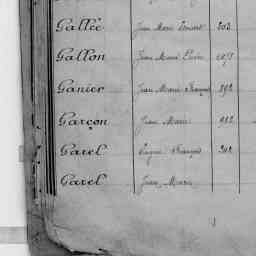 Gallée Jean Marie 203
Gallon Jean Marie
Ganier Jean Marie François 892
Garçon Jean Marie 982
Garel Eugène François 302
Garel Jean Marie